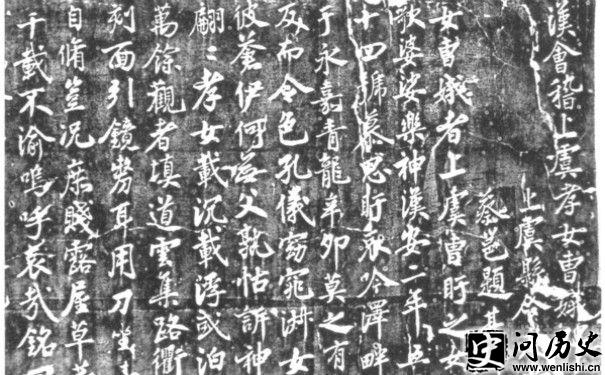 漢會稽上虞孝女曹娥
上虞縣令
蔡邕題其
女曹娥者上虞曹盱之女
歌婆娑樂神漢安二年五
十四號慕思盱哀吟澤畔
于永嘉青龍辛卯莫之有
反而令色孔儀窈窕淑女
彼蒼伊何無父孰怙訴神
翩〻孝女載沉載浮或泊
萬餘觀者填道雲集路衢
刻面引鏡剺耳用刀坐
自脩豈況庶賤露屋草
千載不渝嗚呼哀哉銘
问历史
www.wenlishi.cn